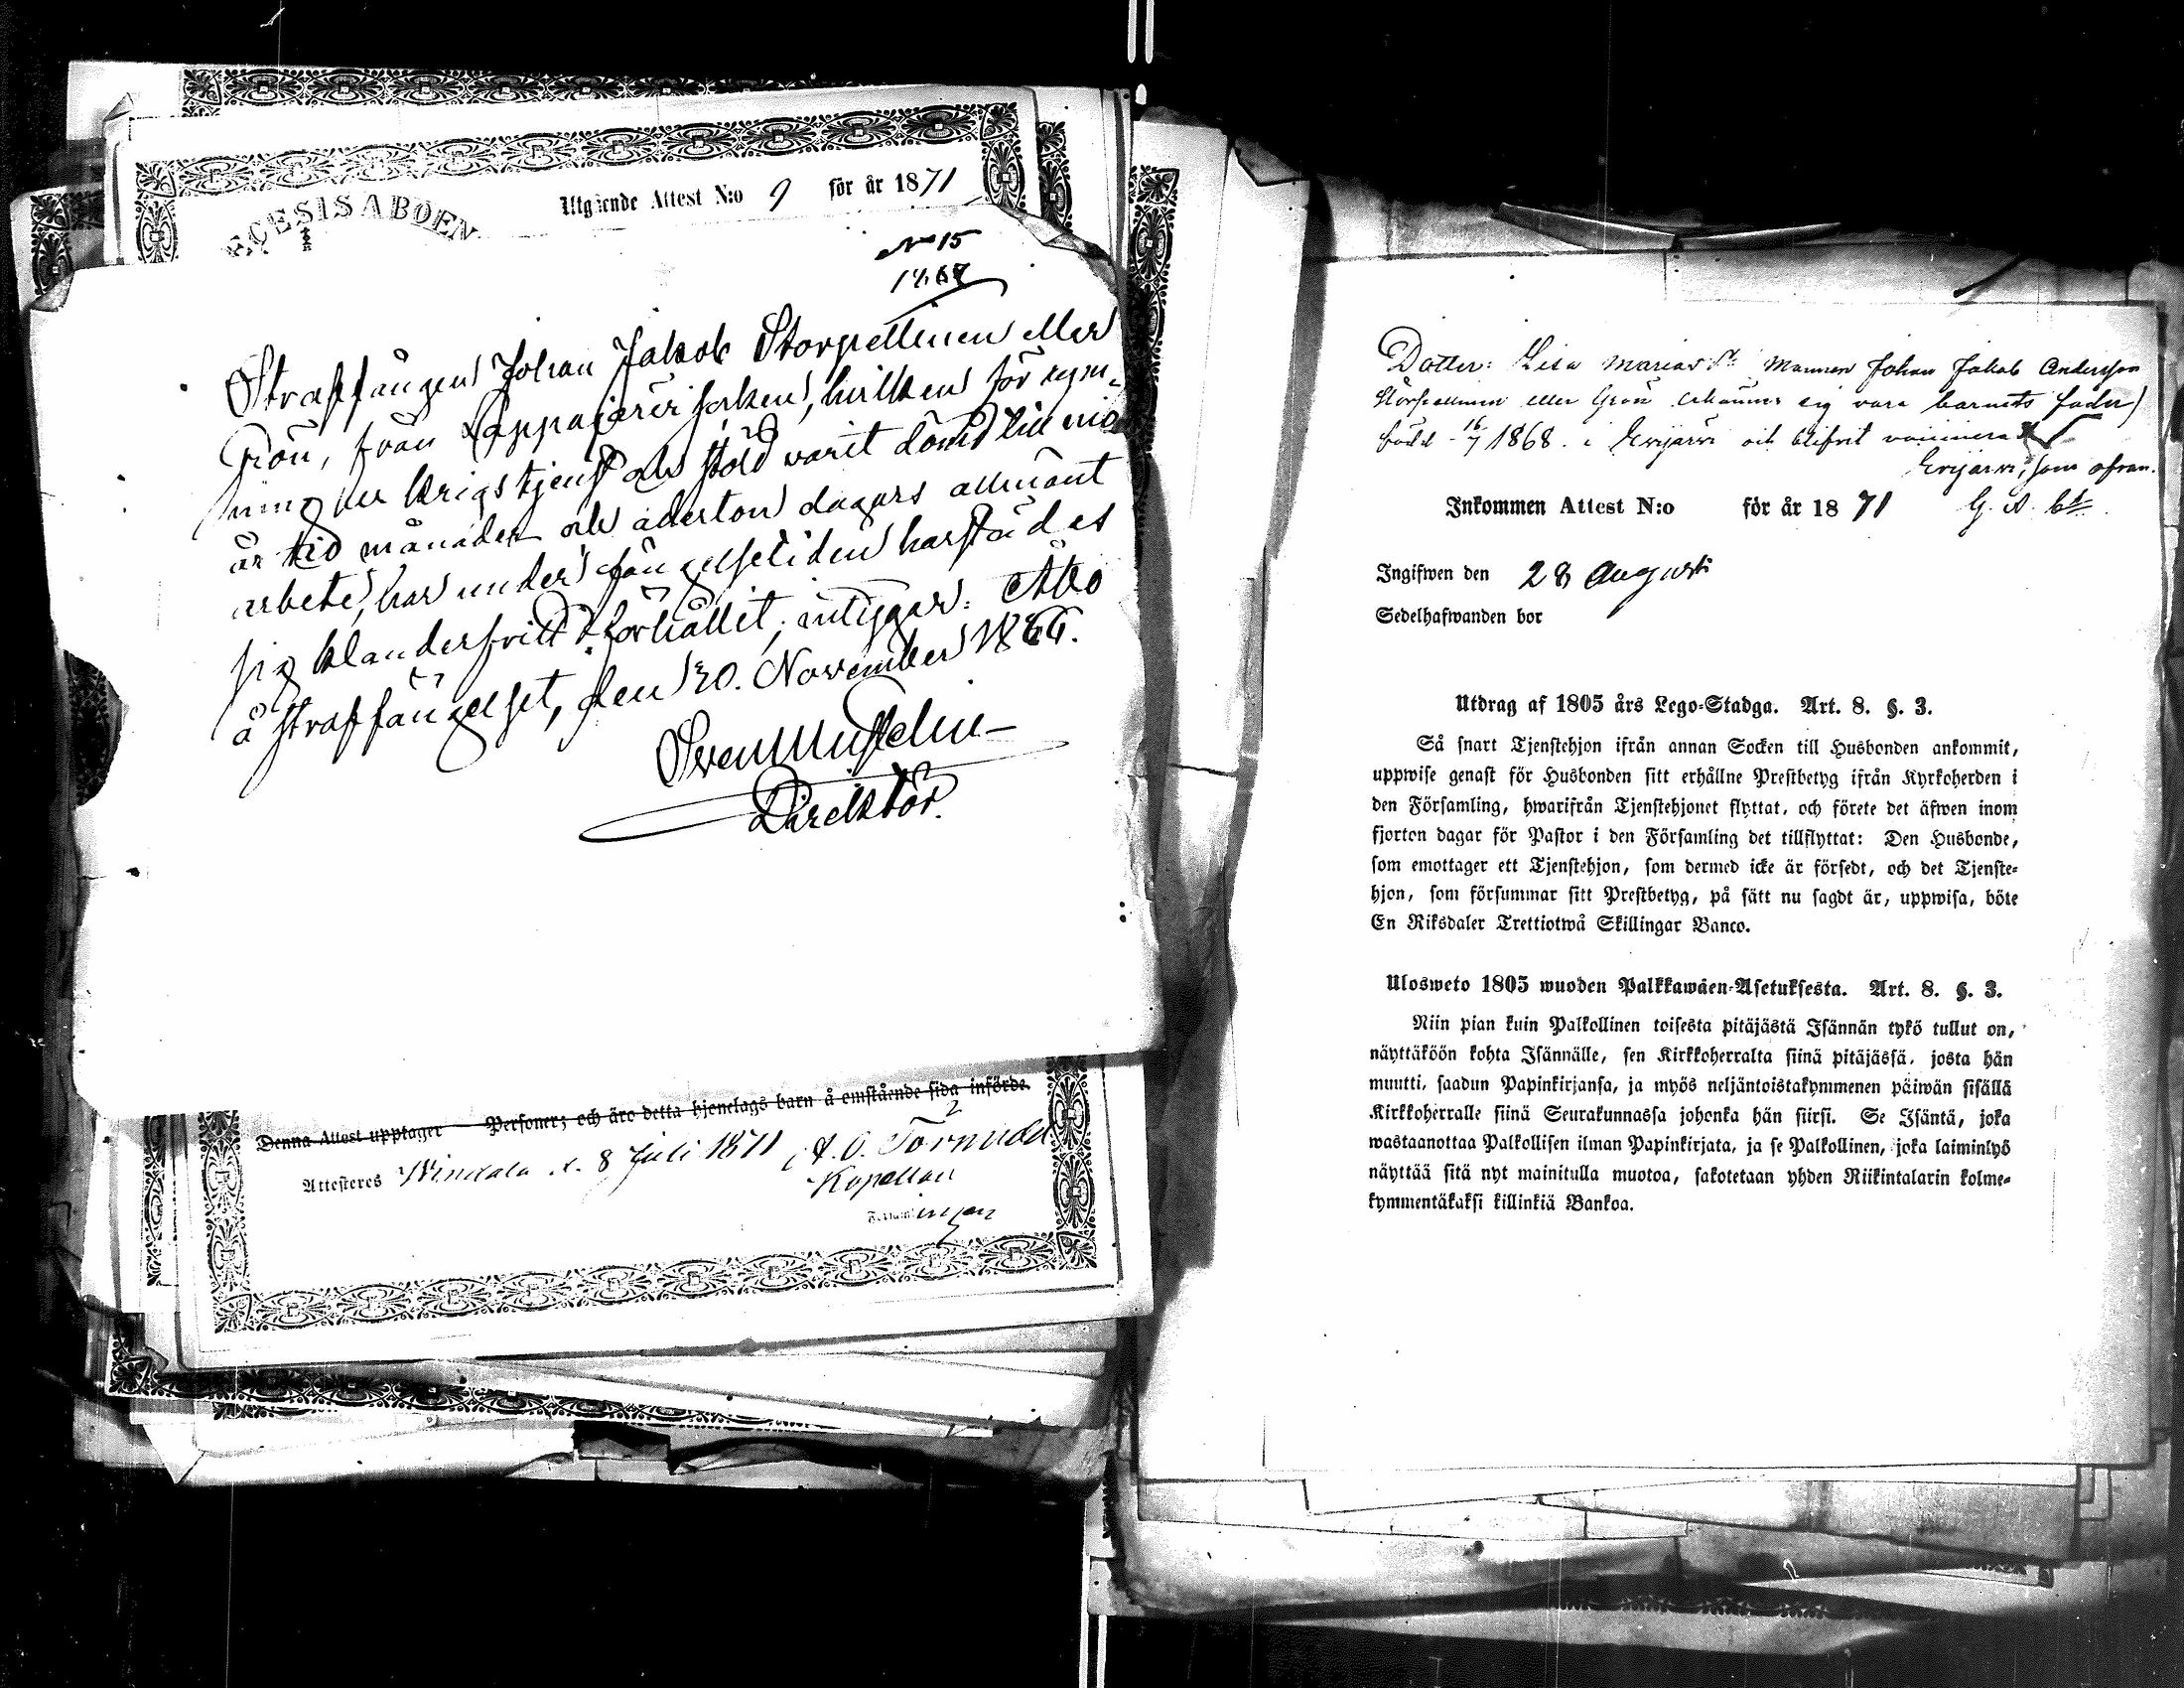 ECESIS ABOEN
Utgående Attest N:o 9 för år 1871
No 15
1867
Straffången Johan Jakob Storpellinen eller
Grön, från Lappajärvi socken, hvilken för rym-
ning ur krigstjenst och stöld varit dömd till nio
år två månader och aderton dagars allmänt
arbete, har under fångelsetiden härstädes
sig klanderfritt förhållit; intygar. Åbo
å straffängelset, den 30. November 1866.
Direktör.
Denna Attest upptager Personer; och äro detta hjonelags barn å omstående sida införde.
Attesteres Windala d. 8 Juli 1871 A. O. Törnudd
Kapellan
Dotter: Lisa Maria (Mannen Johan Jakob Andersson
eller Grön erkänner sig vara barnets fader)
född 16/7 1868 i Evijärvi och blifvit
Evijärvi, som ofvan.
Inkommen Attest N:o för år 1871 G. A.
Ingifwen den 28 Augusti
Sedelhafwanden bor
Utdrag af 1805 års Lego-Stadga. Art. 8. §. 3.
Så snart Tjenstehjon ifrån annan Socken till Husbonden ankommit,
uppwise genast för Husbonden sitt erhållne Prestbetyg ifrån Kyrkoherden i
den Församling, hwarifrån Tjenstehjonet flyttat, och förete det äfwen inom
fjorton dagar för Pastor i den Församling det tillflyttat: Den Husbonde,
som emottager ett Tjenstehjon, som dermed icke är försedt, och det Tjenste-
hjon, som försummar sitt Prestbetyg, på sätt nu sagdt är, uppwisa, böte
En Riksdaler Trettiotwå Skillingar Banco.
Ulosweto 1805 wuoden Palkkawäen-Asetuksesta. Art. 8. §. 3.
Niin pian kuin Palkollinen toisesta pitäjästä Isännän tykö tullut on,
näyttäköön kohta Isännälle, sen Kirkkoherralta siinä pitäjässä, josta hän
muutti, saadun Papinkirjansa, ja myös neljäntoistakymmenen päiwän sisällä
Kirkkoherralle siinä Seurakunnassa johonka hän siirsi. Se Isäntä, joka
wastaanottaa Palkollisen ilman Papinkirjata, ja se Palkollinen, joka laiminlyö
näyttää sitä nyt mainitulla muotoa, sakotetaan yhden Riikintalarin kolme-
kymmentäkaksi killinkiä Bankoa.